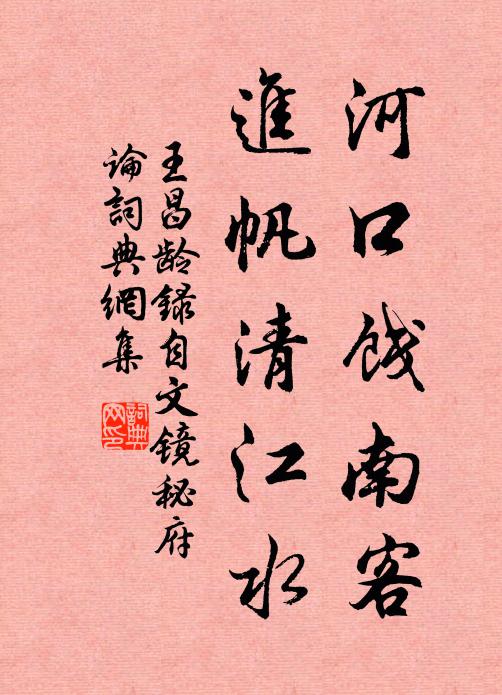 河口饯南客
進帆清江水
王昌龄録自文镜秘府
论詞典網集
詞典網印